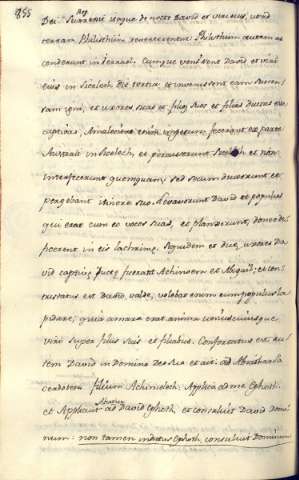 855
Reg.
Dei. Surrexit itaque de nocte David et viri eius, ut ad
terram Philisthiim reverterentur. Philisthiim autem as-
cenderunt in Iezrael. Cumque venissent David et viri
eius in Sicelech die tertia et invenissent eam succen-
sam igni, et uxores suas et filios suos et filias ductas esse
captivas, Amalecitae enim impetum fecerant ex parte
Australi in Sicelech, et percusserunt Sicelech et non
interfecerunt quemquam; sed secum duxerunt et
pergebant itinere suo. Levaverunt David et populus
qui erat cum eo voces suas, et planxerunt, donec de-
ficerent in eis lachrimae. Siquidem et duae uxores Da-
vid captivae ductae fuerant Achinoem et Abigail; et con-
tristatus est David, valde, volebat enim eum populus la-
pidare; quia amara erat anima uniuscuiusque
viri super filiis suis et filiabus. Confortatus est au-
tem David in Domino Deo suo et ait ad Abiathar Sa-
cerdotem filium Achimelech: Applica ad me Ephot.
Abiathar
et Applicuit ad David Ephoth, et consuluit David Domi-
num: non tamen indutus Ephoth, consuluit Dominum